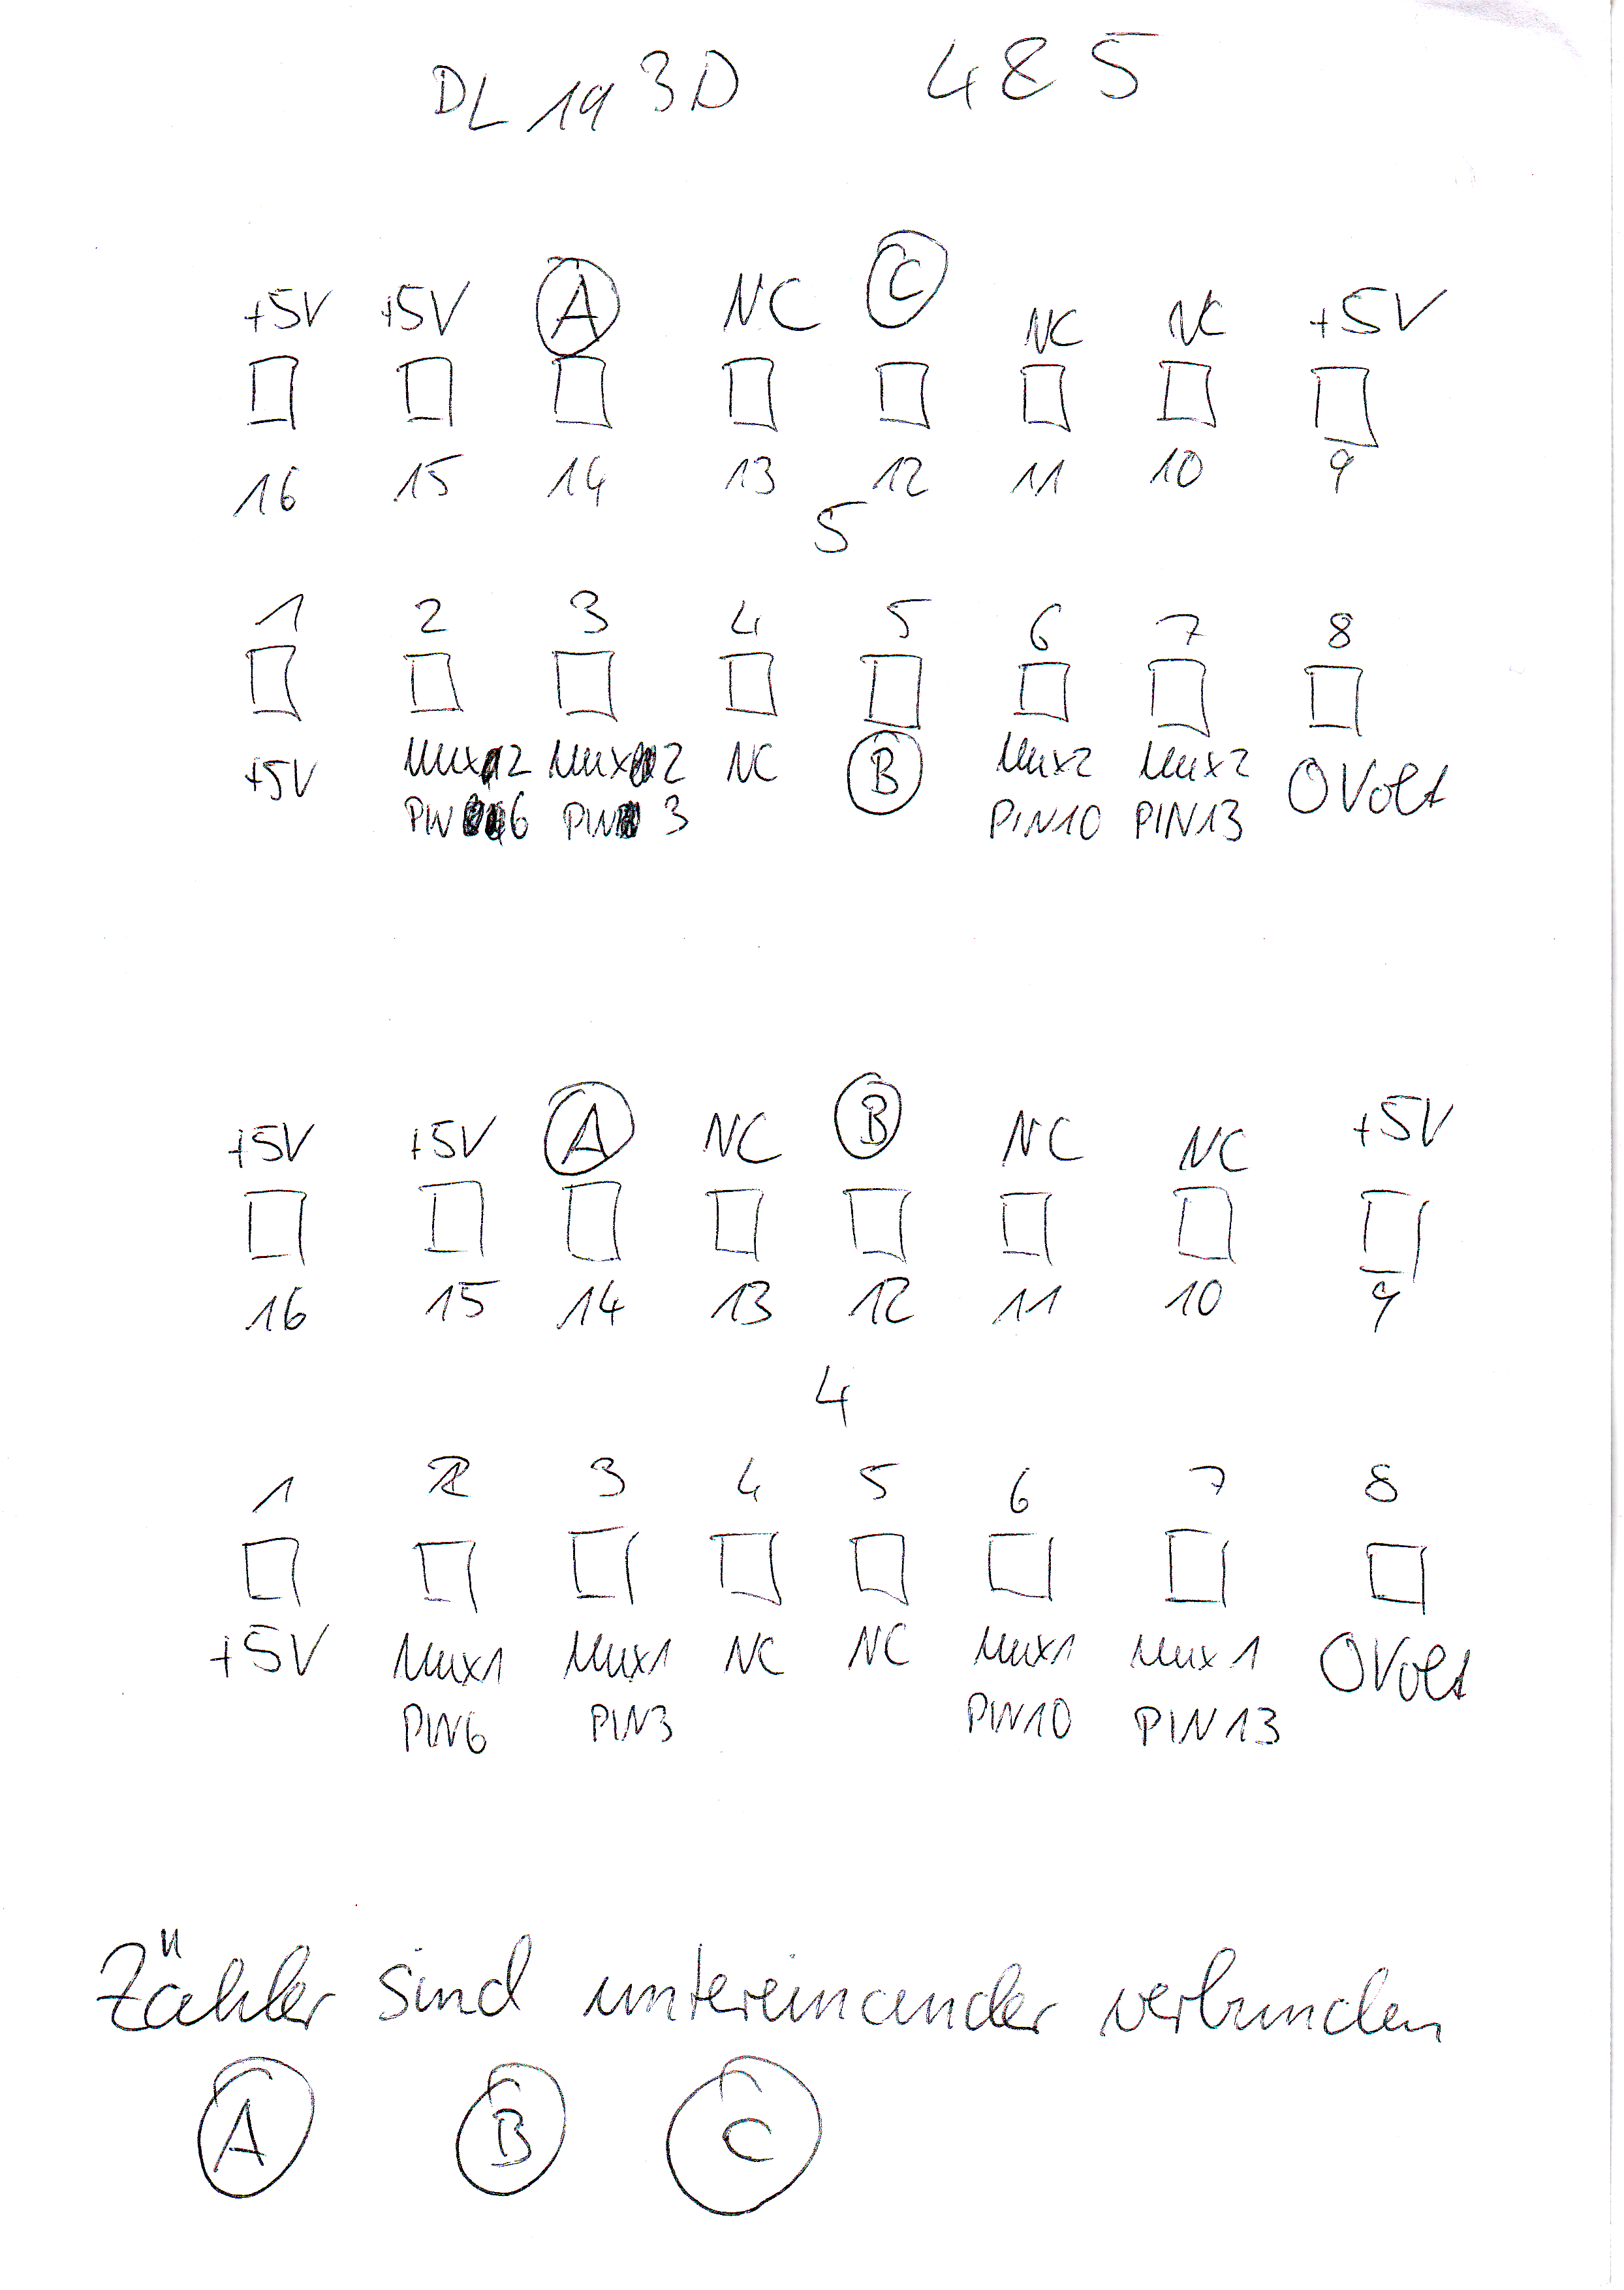 DL 193D 4 & 5
+5V +5V A NC C NC NC +5V
16 15 14 13 12 11 10 9
5
1 2 3 4 5 6 7 8
+5V Mux 2 Mux 2 NC B Mux2 Mux2 0Volt
PIN 6 PIN 3 PIN10 PIN13
+5V +5V A NC B NC NC +5V
16 15 14 13 12 11 10 9
4
1 2 3 4 5 6 7 8
+5V Mux1 Mux1 NC NC Mux1 Mux1 0Volt
PIN6 PIN3 PIN10 PIN13
Zähler sind untereinander verbunden
A B C